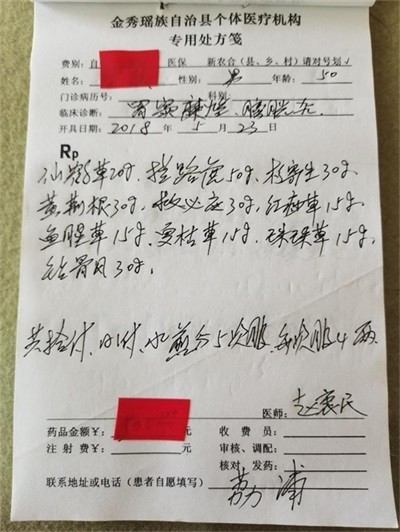 金秀瑶族自治县个体医疗机构
专用处方笺
费别：自 医保 新农合（县、乡、村）请对号划√
姓名： 性别：男 年龄：50
门诊病历号： 科别：
临床诊断：
开具日期：2018年5月23日
Rp
仙鹤草20g、 50g、 寄生30g、
黄荆根30g、救必应30g、红 草15g、
鱼腥草15g、夏枯草15g、珍珠草15g、
钻骨风30g。
共拾付、日1付、水煎分5次服 每次服4两
医师：赵
药品金额￥： 元 收费员：
注射费￥： 元 审核、调配：
核对、发药：
联系地址或电话（患者自愿填写）